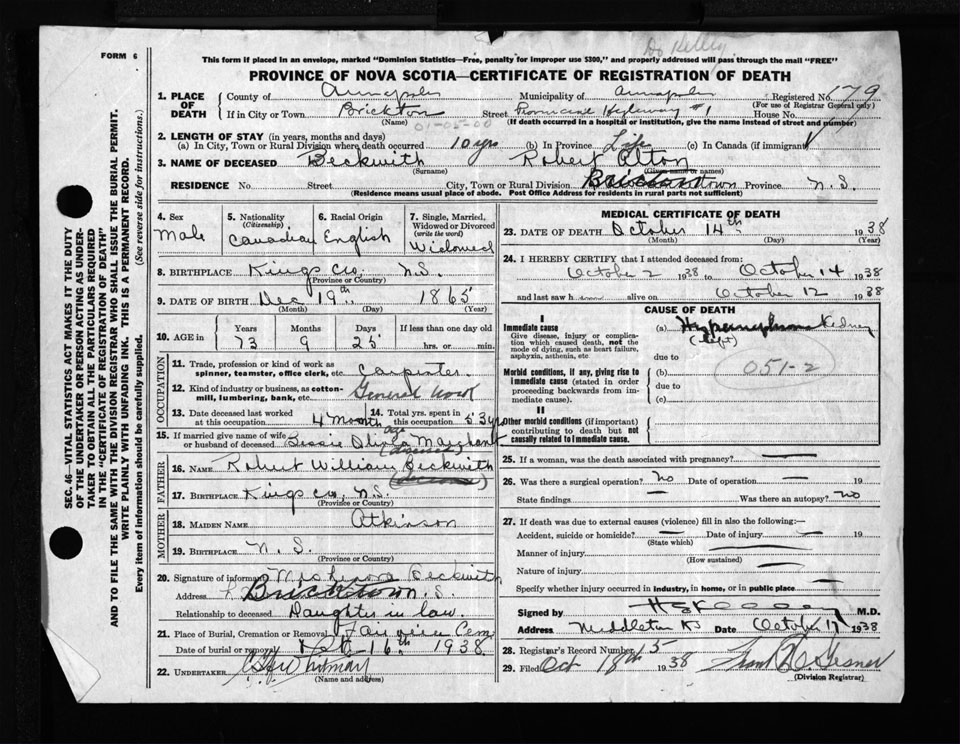 Dr Kelley
FORM 6
This form if placed in an envelope, marked "Dominion Statistics—Free, penalty for improper use $300," and properly addressed will pass through the mail "FREE"
PROVINCE OF NOVA SCOTIA—CERTIFICATE OF REGISTRATION OF DEATH
SEC. 46—VITAL STATISTICS ACT MAKES IT THE DUTY
OF THE UNDERTAKER OR PERSON ACTING AS UNDER-
TAKER TO OBTAIN ALL THE PARTICULARS REQUIRED
IN THE "CERTIFICATE OF REGISTRATION OF DEATH"
AND TO FILE THE SAME WITH THE DIVISION REGISTRAR WHO SHALL ISSUE THE BURIAL PERMIT.
WRITE PLAINLY WITH UNFADING INK. THIS IS A PERMANENT RECORD.
Every item of information should be carefully supplied. (See reverse side for instructions.)
1. PLACE OF DEATH
County of Annapolis Municipality of Annapolis Registered No. 179
(For use of Registrar General only)
If in City or Town Brickton Street Provincial Highway #1 House No.
(Name) 01-05-00 (If death occurred in a hospital or institution, give the name instead of street and number)
2. LENGTH OF STAY (in years, months and days)
(a) In City, Town or Rural Division where death occurred 10 yrs (b) In Province Life (c) In Canada (if immigrant)
3. NAME OF DECEASED Beckwith Robert Alton
(Surname) (Given name or names)
RESIDENCE No. Street City, Town or Rural Division Province N.S.
(Residence means usual place of abode. Post Office Address for residents in rural parts not sufficient)
4. Sex Male
5. Nationality (Citizenship) Canadian
6. Racial Origin English
7. Single, Married, Widowed or Divorced (write the word) Widowed
8. BIRTHPLACE Kings Co. N.S.
(Province or Country)
9. DATE OF BIRTH Dec 19th 1865
(Month) (Day) (Year)
10. AGE in Years 73 Months 9 Days 25 If less than one day old hrs. or min.
OCCUPATION
11. Trade, profession or kind of work as spinner, teamster, office clerk, etc. Carpenter
12. Kind of industry or business, as cotton-mill, lumbering, bank, etc. General Work
13. Date deceased last worked at this occupation 4 Months ago
14. Total yrs. spent in this occupation 53 yrs
15. If married give name of wife or husband of deceased Bessie Marghant
(deceased)
FATHER
16. NAME Robert William Beckwith
(deceased)
17. BIRTHPLACE Kings Co, N.S.
(Province or Country)
MOTHER
18. MAIDEN NAME Atkinson
19. BIRTHPLACE N. S.
(Province or Country)
20. Signature of informant Beckwith
Address Bricktown N.S.
Relationship to deceased Daughter in law.
21. Place of Burial, Cremation or Removal Fairview Cem
Date of burial or removal Oct 16th 1938
22. UNDERTAKER Whitman
(Name and address)
MEDICAL CERTIFICATE OF DEATH
23. DATE OF DEATH October 14th 1938
(Month) (Day) (Year)
24. I HEREBY CERTIFY that I attended deceased from:
October 2 1938 to October 14 1938
and last saw h alive on October 12 1938
CAUSE OF DEATH
I
Immediate cause
Give disease, injury or complication which caused death, not the mode of dying, such as heart failure, asphyxia, asthenia, etc
(a) Hypernephroma Kidney
(Left)
due to
Morbid conditions, if any, giving rise to immediate cause (stated in order proceeding backwards from immediate cause).
(b) 051-2
due to
(c)
II
Other morbid conditions (if important) contributing to death but not causally related to immediate cause.
25. If a woman, was the death associated with pregnancy? —
26. Was there a surgical operation? No Date of operation — 19
State findings — Was there an autopsy? No
27. If death was due to external causes (violence) fill in also the following:—
Accident, suicide or homicide? — Date of injury — 19
(State which)
Manner of injury
(How sustained)
Nature of injury
Specify whether injury occurred in industry, in home, or in public place
Signed by M.D.
Address Middleton NS Date October 17 1938
28. Registrar's Record Number 15
29. Filed Oct 18th 1938
(Division Registrar)